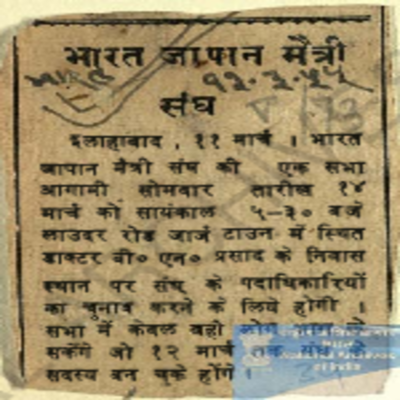 भारत जापान मैत्री
भारत १२.३.५५
संघ
इलाहाबाद, ११ मार्च । भारत
जापान मैत्री संघ की एक सभा
आगामी सोमवार तारीख १४
मार्च को सायंकाल ५-३० बजे
लाउदर रोड जार्ज टाउन में स्थित
डाक्टर बी० एन० प्रसाद के निवास
स्थान पर संघ के पदाधिकारियों
का चुनाव करने के लिये होगी ।
सभा में केवल वही लोग
सकेंगे जो १२ मार्च तक संघ के
सदस्य बन चुके होंगे ।